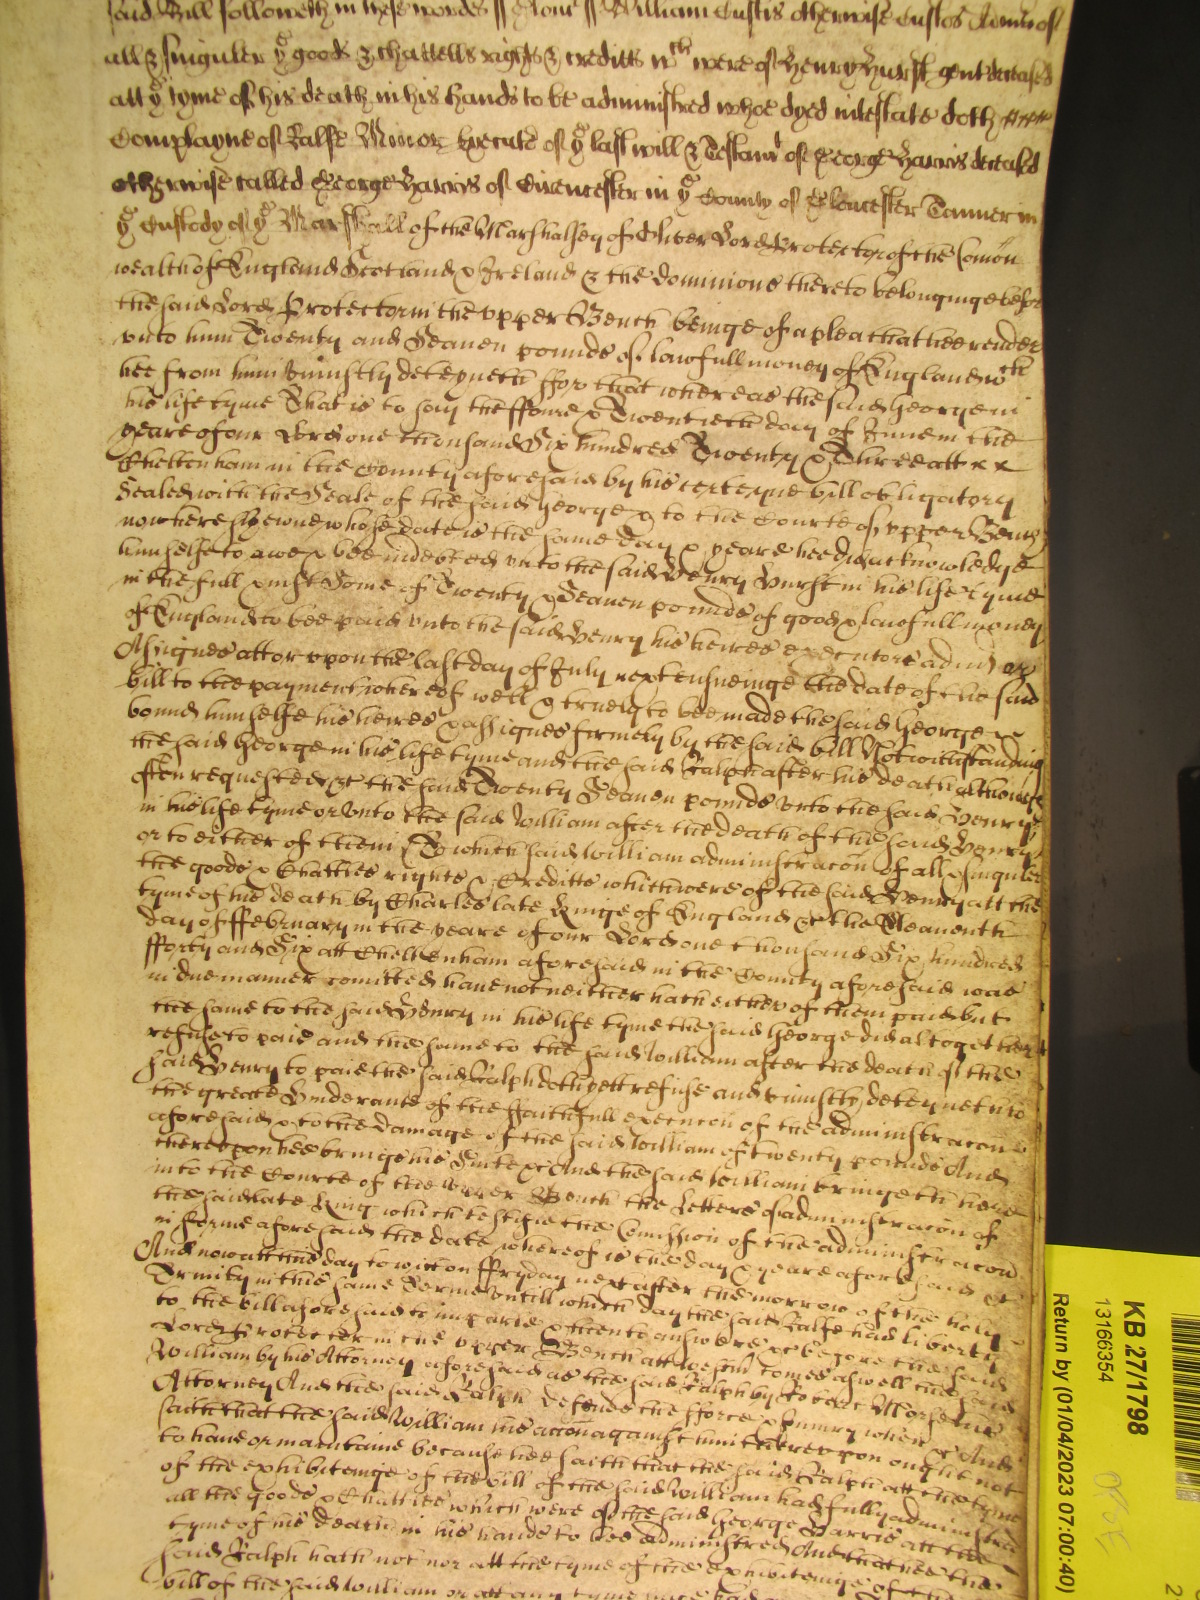 said Bill followeth in these words ss Glouc ss William Custis otherwise Custos Admistr of
all & singuler ye goods & chattells rights & creditts wch were of Henry Hurst gent deceased
att ye tyme of his death in his hands to be administred whoe dyed intestate doth
Complayne of Ralfe Minor Execut of ye last will & Testamt of George Harris deceased
otherwise called George Harris of Cirencester in ye County of Gloucester Tanner in
ye Custody of ye Marshall of the Marshalsey of Oliver Lord Protector of the Comon
wealth of England Scotland & Ireland & the dominions thereto belonginge before
the said Lord Protector in the upper Bench beinge of a plea that hee render
unto him Twenty and Seaven pounds of lawfull money of England wch
hee from him uniustly deteyneth ffor that whereas the said George in
his life tyme That is to say the ffowre & Twentieth day of June in the
yeare of our Lord one thousand Six hundred Twenty & Three att x x
Cheltenham in the County aforesaid by his certeyne bill obligatory
Sealed with the Seale of the said George & to the Courte of upper Bench
now here shewne whose date is the same day & yeare hee did acknowledge
himselfe to owe & bee indebted unto the said Henry Hurst in his life tyme
in the full & iust Some of Twenty & Seaven pounds of good & lawfull money
of England to bee paid unto the said Henry his heires executors admi) or
Assignes att or uppon the last day of July next ensueinge the date of the said
bill to the payment whereof well & truely to bee made the said George
bound himselfe his heires & assignes firmely by the said bill Notwithstanding
the said George in his life tyme and the said Ralph after his death although
often requested &c the said Twenty Seaven pounds unto the said Henry
in his life tyme or unto the said William after the death of the said Henry
or to either of them (To which said William administracon of all & singuler
the goods & Chattles rights & Creditts which were of the said Henry att the
tyme of his death by Charles late Kinge of England &c the Eleaventh
day of ffebruary in the yeare of our Lord one thousand Six hundred
fforty and Six att Cheltenham aforesaid in the County aforesaid was
in due manner comitted) have not neither hath either of them paid but
the same to the said Henry in his life tyme the said George did altogether
refuse to paie and the same to the said William after the death of the
said Henry to paie the said Ralph doth yett refuse and uniustly deteyneth to
the greate hinderance of the ffaithfull execucon of the administracon
aforesaid & to the damage of the said William of twenty pounds And
thereupon hee brings his Suite &c And the said William bringeth here
into the Courte of the upper Bench the Letters of administracon of
the said late King which testifie the Comission of the administracon
in forme aforesaid the date whereof is the day & yeare aforesaid &c
And now att this day to witt on ffryday next after the morrow of the holy
Trinity in this same Terme untill which day the said Ralfe had liberty
to the bill aforesaid to imparle & then to answere &c before the said
Lord Protector in the upper Bench att Westm comes aswell the said
William by his Attorney aforesaid as the said Ralph by Robert his
Attorney And the said Ralph defends the fforce & Iniury when &c And
saith that the said William his accon against him thereupon ought not
to have or maintaine because hee saith that the said Ralph att the tyme
of the exhibiteinge of the bill of the said William had fully administred
all the goods & Chattles which were of the said George Harris att the
tyme of his death in his hands to bee administred And that hee the
said Ralph hath not nor att the tyme of the exhibiteinge of the
bill of the said William or att any tyme
KB 27/1798
13166354
Return by (01/04/2023 07:00:40)